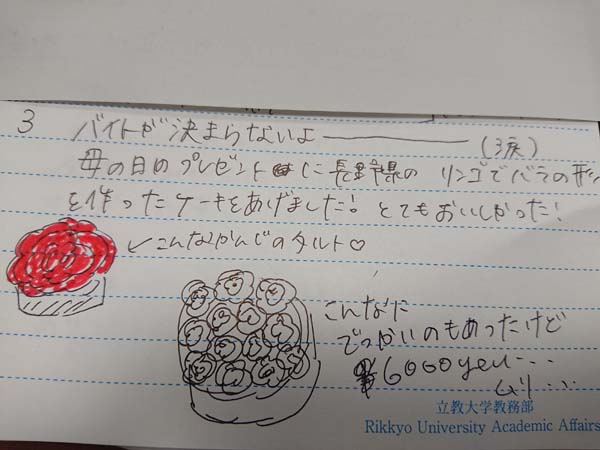 3 バイトが決まらないよ――――(3戻)
母の日のプレゼントに長野県のリンゴでバラの形
を作ったケーキをあげました! とてもおいしかった!
↙こんなかんじのタルト♡
こんなに
でっかいのもあったけど
6000yen...
ムリ...
立教大学教務部
Rikkyo University Academic Affairs